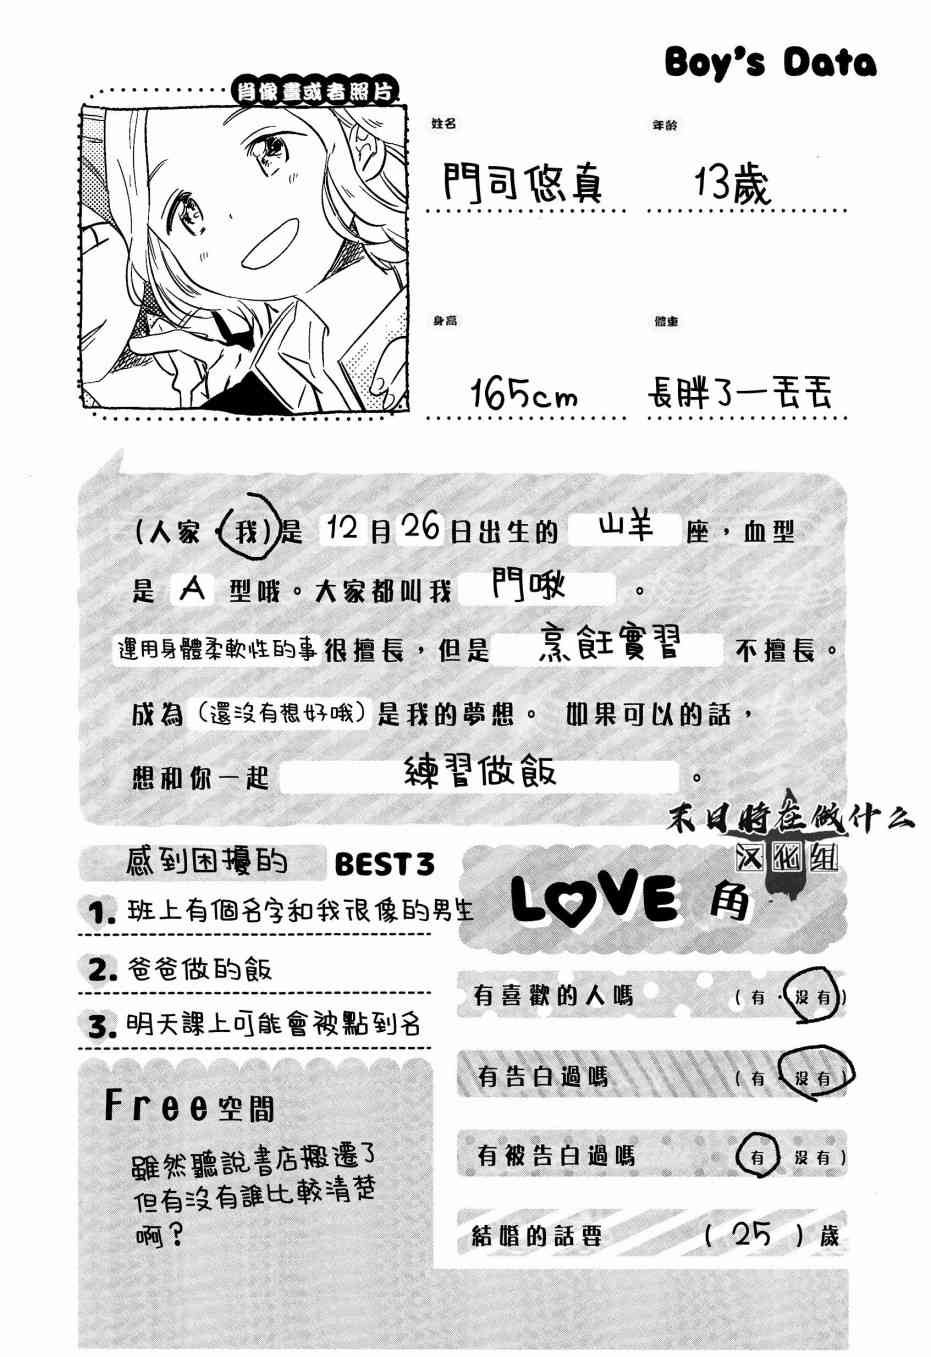 Boy's Data
肖像畫或者照片
姓名
年齡
門司悠真
13歲
身高
體重
165cm
長胖了一丟丟
(人家・我)是 12月26日出生的 山羊 座，血型
是 A 型哦。大家都叫我 門啾 。
運用身體柔軟性的事很擅長，但是 烹飪實習 不擅長。
成為（還沒有想好哦）是我的夢想。 如果可以的話，
想和你一起 練習做飯 。
末日時在做什么
汉化组
感到困擾的 BEST3
1. 班上有個名字和我很像的男生
2. 爸爸做的飯
3. 明天課上可能會被點到名
LOVE 角
有喜歡的人嗎 (有・沒有)
有告白過嗎 (有・沒有)
有被告白過嗎 (有・沒有)
結婚的話要 (25)歲
Free空間
雖然聽說書店搬遷了
但有沒有誰比較清楚
啊？